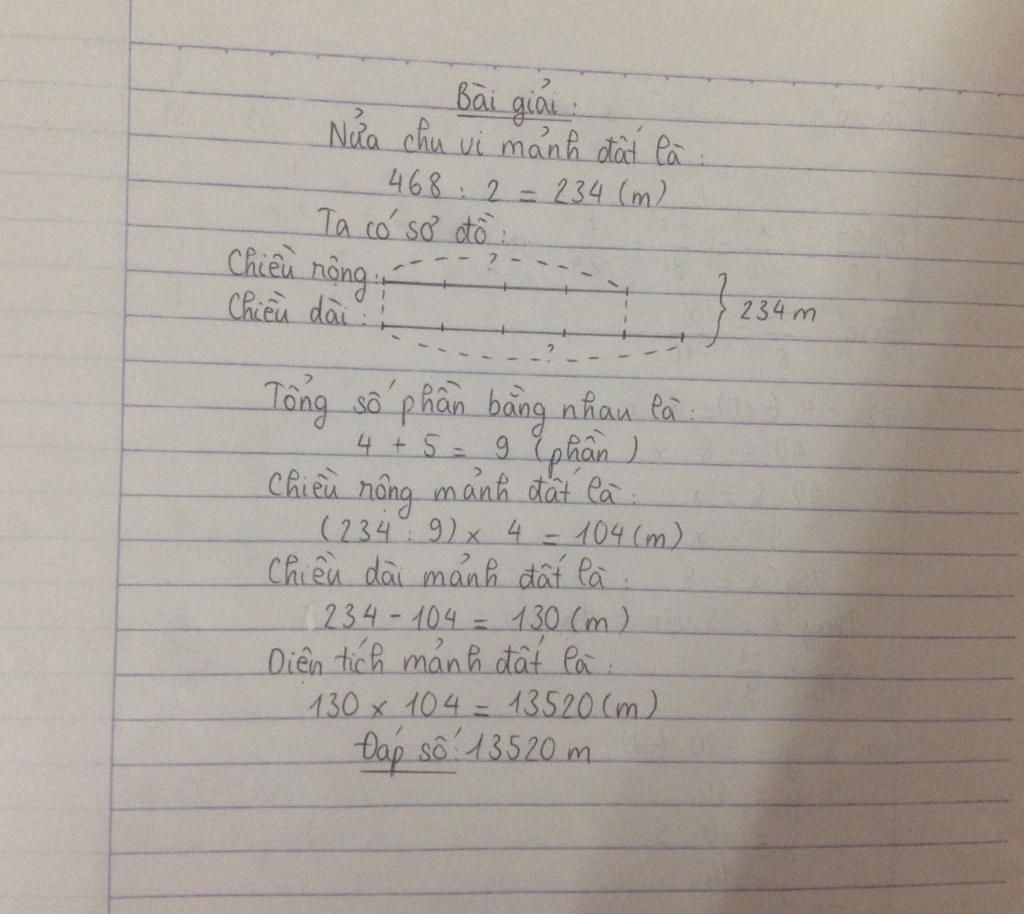 Bài giải:
Nửa chu vi mảnh đất là:
468 : 2 = 234 (m)
Ta có sơ đồ:
?
Chiều rộng:
234 m
Chiều dài:
?
Tổng số phần bằng nhau là:
4 + 5 = 9 (phần)
Chiều rộng mảnh đất là:
(234 : 9) × 4 = 104 (m)
Chiều dài mảnh đất là:
234 - 104 = 130 (m)
Diện tích mảnh đất là:
130 × 104 = 13520 (m)
Đáp số: 13520 m